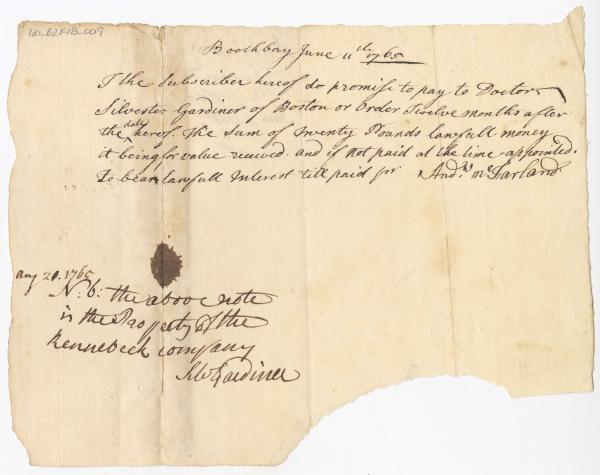 60_B2F1B_009
Boothbay June 11th 1765
I the Subscriber hereof do promise to pay to Doctor
Silvester Gardiner of Boston or Order Twelve months after
the date hereof the Sum of Twenty Pounds lawfull money
it being for value received. and if not paid at the time appointed.
To bear lawfull Interest till paid pr Andw McFarland
aug 21. 1765
N: b: the above note
is the Property of the
Kennebeck company
Gardiner